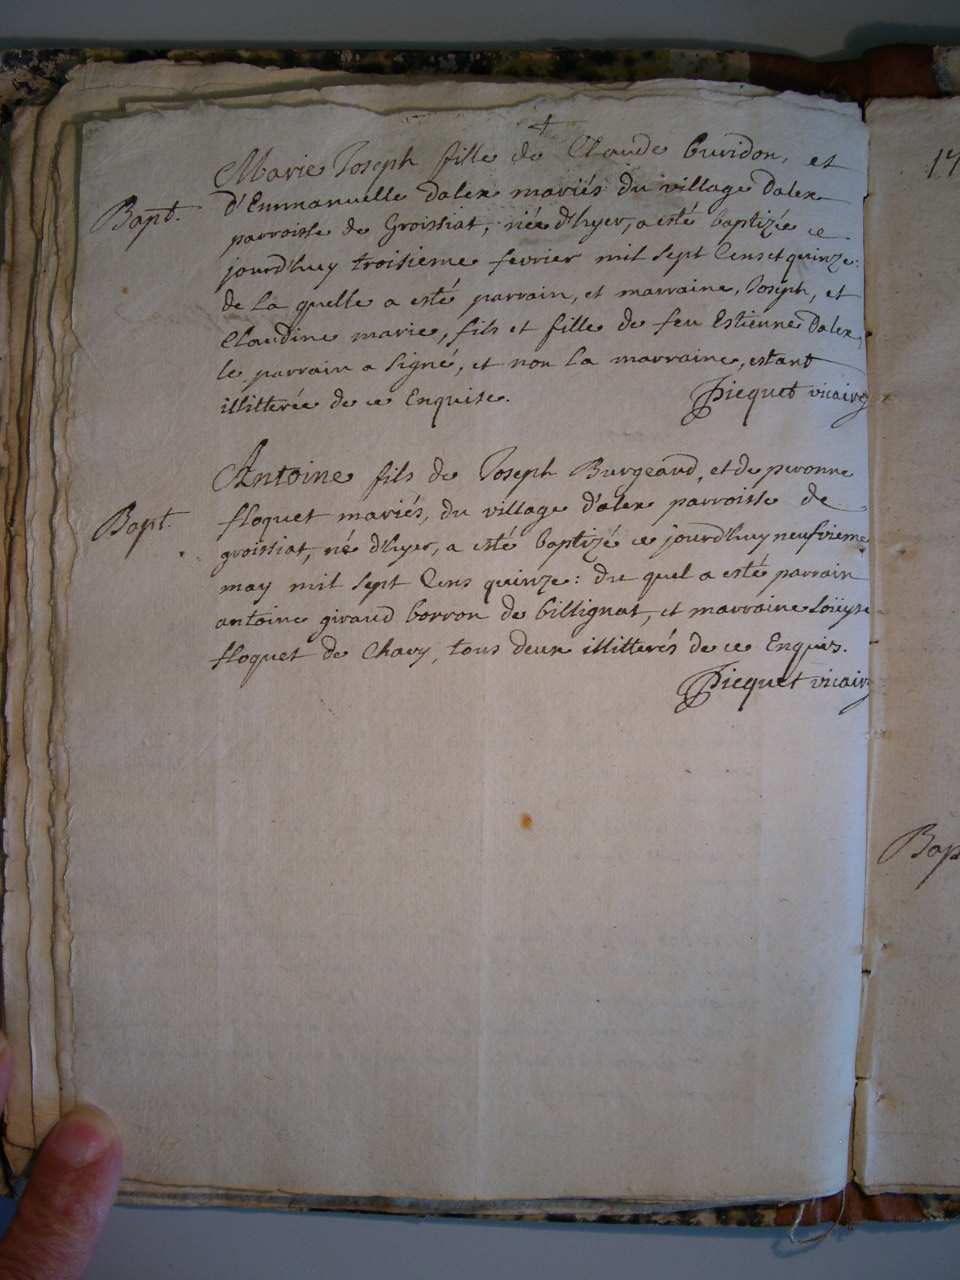 4
Marie Joseph fille de Claude buridon, et
Bapt. d'Emmanuelle dalex mariés du village dalex
parroisse de Groissiat, née d'hyer, a esté baptizée ce
jourd'huy troisieme fevrier mil sept cens et quinze:
de la quelle a esté parrain, et marraine, Joseph, et
Claudine marie, fils et fille de feu Estienne dalex,
le parrain a signé, et non la marraine, estant
illitterée de ce Enquise. Picquet vicaire
Antoine fils de Joseph Burgeaud, et de peronne
Bapt. floquet mariés, du village d'alex parroisse de
groissiat, né d'hyer, a esté baptizé ce jourd'huy neufvieme
may mil sept cens quinze: du quel a esté parrain
antoine giraud borron de billignat, et marraine Loüyse
floquet de Chavy, tous deux illitterés de ce Enquis.
Picquet vicaire
17
Bap